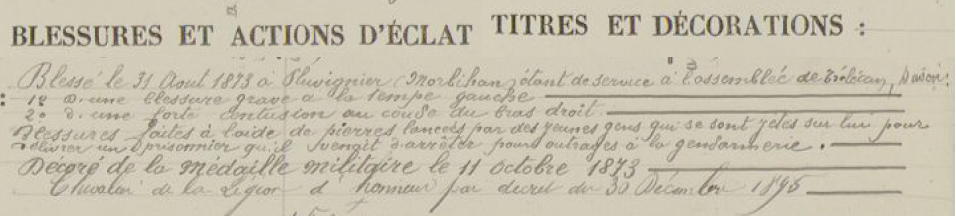 BLESSURES ET ACTIONS D'ÉCLAT TITRES ET DÉCORATIONS :
Blessé le 31 Août 1873 à Pluvignier (Morbihan) étant de service à l'assemblée de
1º d'une blessure grave à la tempe gauche
2º d'une forte contusion au coude du bras droit.
Blessures faites à l'aide de pierres lancées par des jeunes gens qui se sont jetés sur lui pour
délivrer un prisonnier qu'il venait d'arrêter pour outrages à la gendarmerie.
Décoré de la médaille militaire le 11 octobre 1873
Chevalier de la Légion d'honneur par décret du 30 Décembre 1895